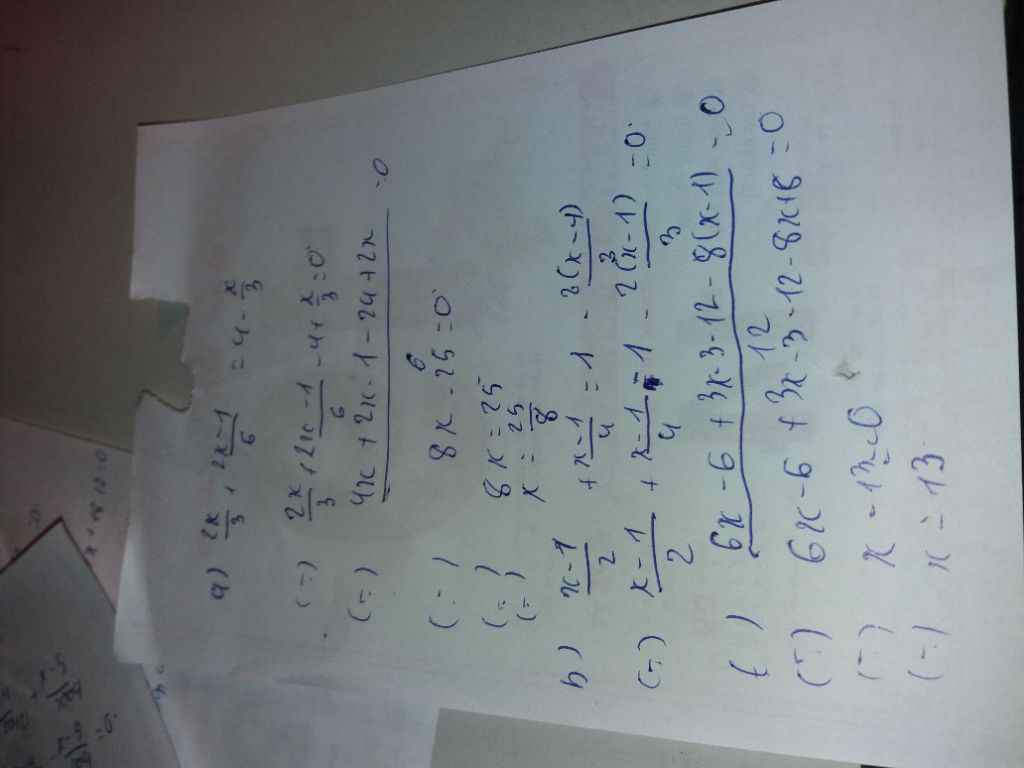 a) 2x/3 + 2x-1/6 = 4 - x/3
(=) 2x/3 + 2x-1/6 - 4 + x/3 = 0
(=) 4x + 2x - 1 - 24 + 2x / 6 = 0
(=) 8x - 25 = 0
(=) 8x = 25
(=) x = 25/8
b) x-1/2 + x-1/4 = 1 - 2(x-4)/3
(=) x-1/2 + x-1/4 - 1 - 2(x-1)/3 = 0
( ) 6x - 6 + 3x - 3 - 12 - 8(x-1) / 12 = 0
(=) 6x - 6 + 3x - 3 - 12 - 8x + 8 = 0
(=) x - 13 = 0
(=) x = 13